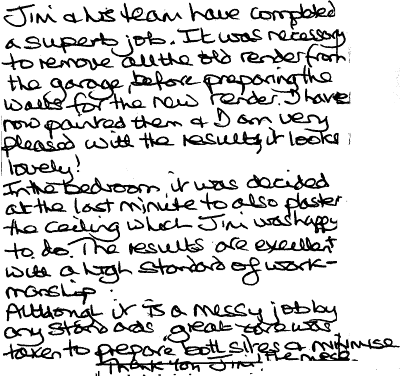 Jim & his team have completed
a superb job. It was necessary
to remove all the old render from
the garage before preparing the
walls for the new render. I have
now painted them & I am very
pleased with the results, it looks
lovely!
In the bedroom, it was decided
at the last minute to also plaster
the ceiling which Jim was happy
to do. The results are excellent
with a high standard of work-
manship.
Although it is a messy job by
any standards great care was
taken to prepare both sites & minimise
the mess.
Thank You Jim!